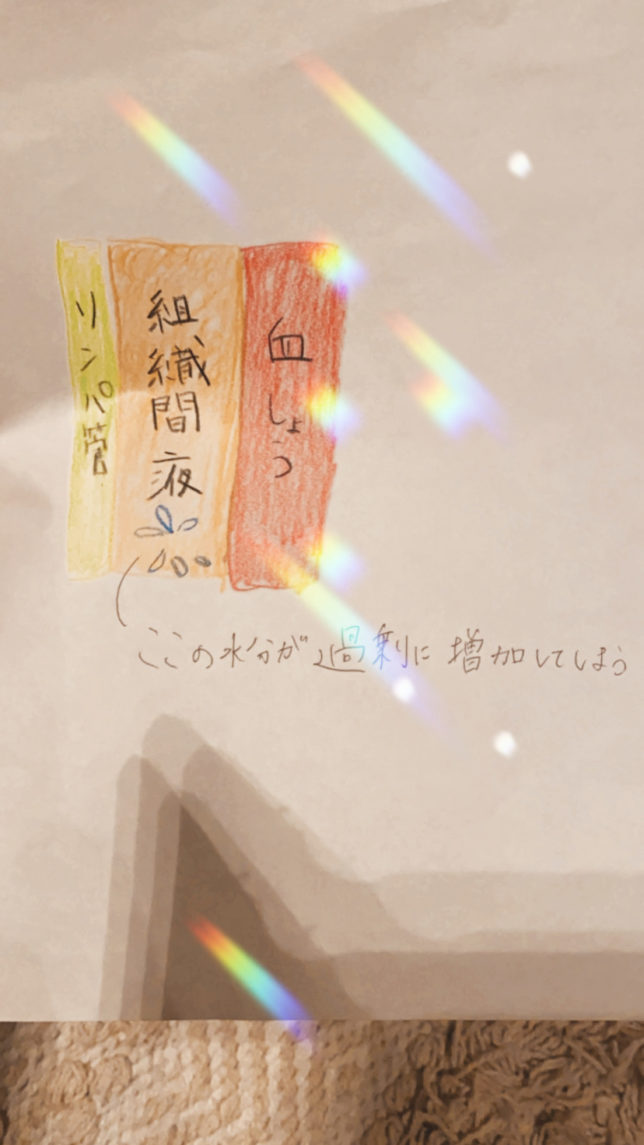 リンパ管
組織間液
血しょう
ここの水分が過剰に増加してしまう